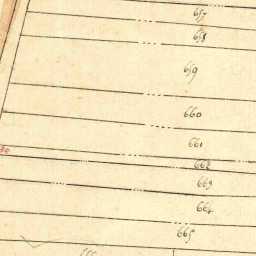 657
658
659
660
661
662
663
664
665